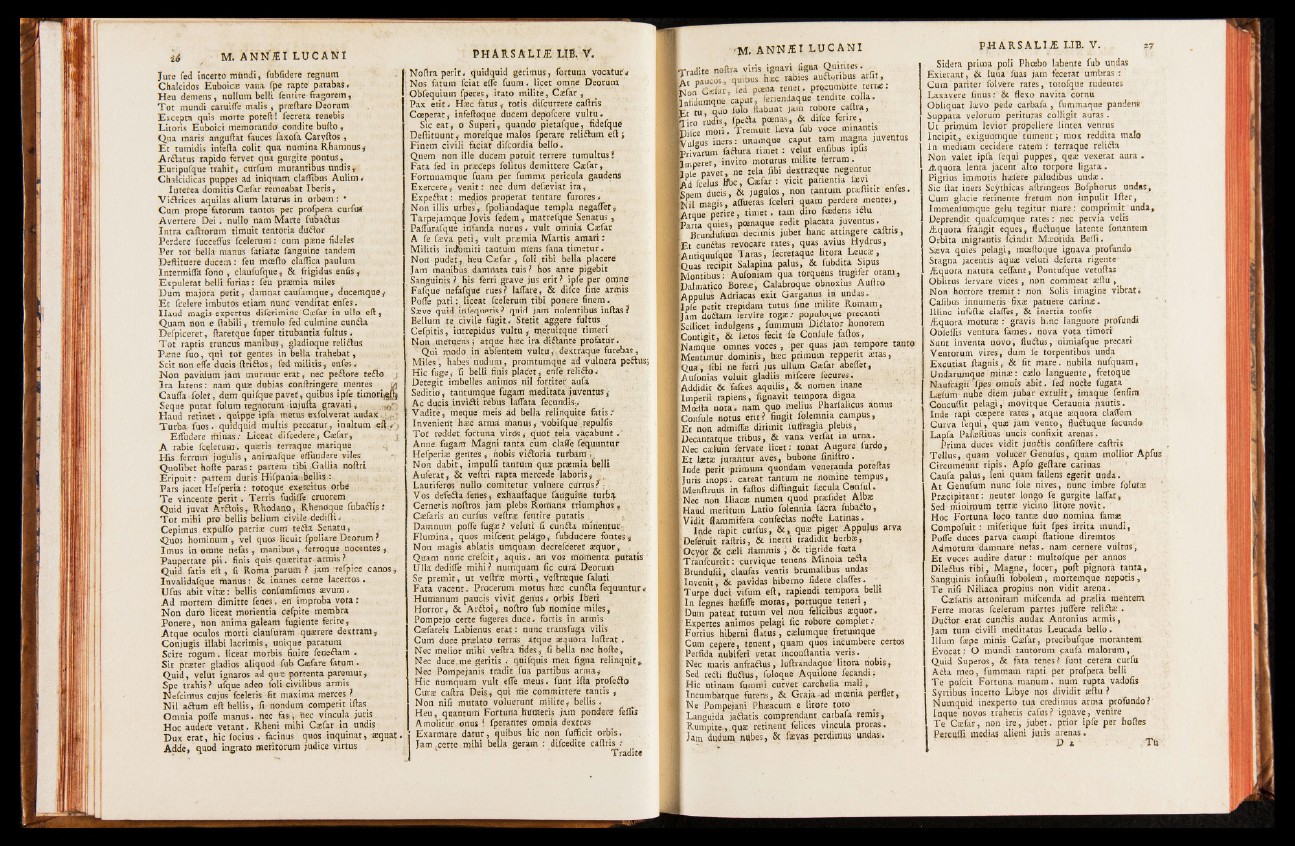 26 M. ANNÆI LUCANI
Jure ſed incerto mundi, ſubſidere regnum
Chalcidos Euboicæ vana ſpe rapte parabas.
Heu demens, nullum belli ſentire fragorem,
Tot mundi caruiſſe malis, præſtare Deorum
Excepta quis morte poteſt! ſecreta tenebis
Litoris Euboici memorando condite buſto,
Qua maris anguſtat fauces ſaxoſa Caryſtos,
Et tumidis infeſta colit qua numina Rhamnus,
Arctatus rapido fervet qua gurgite pontus,
Euripuſque trahit, curſum mutantibus undis,
Chalcidicas puppes ad iniquam claſſibus Aulim.
Interea domitis Cæſar remeabat Iberis,
Victrices aquilas alium laturus in orbem:
Cum prope fatorum tantos per proſpera curſus
Avertere Dei. nullo nam Marte ſubactus
Intra caſtrorum timuit tentoria ductor
Perdere ſucceſſus ſcelerum: cum pæne fideles
Per tot bella manus ſatiatæ ſanguine tandem
Deſtituere ducem: ſeu mœſto claſſica paulum
Intermiſſa ſono, clauſuſque, & frigidus enſis,
Expulerat belli furias: ſeu præmia miles
Dum majora petit, damnat cauſamque, ducemque,
Et ſcelere imbutos etiam nunc venditat enſes.
Haud magis expertus diſcrimine Cæſar in ullo eſt,
Quam non e ſtabili, tremulo ſed culmine cuncta
Deſpiceret, ſtaretque ſuper titubantia fultus.
Tot raptis truncus manibus, gladioque relictus
Pæne ſuo, qui tot gentes in bella trahebat,
Scit non eſſe ducis ſtrictos, ſed militis, enſes.
Non pavidum jam murmur erat, nec pectore tecto
Ira latens: nam quæ dubias conſtringere mentes
Cauſſa ſolet, dum quiſque pavet, quibus ipſe timori eſt,
Seque putat ſolum regnorum injuſta gravari,
Haud retinet. quippe ipſa metus exſolverat audax
Turba ſuos. quidquid multis peccatur, inultum eſt.
Effudere minas: Liceat diſcedere, Cæſar,
A rabie ſcelerum. quæris terraque marique
His ferrum jugulis, animaſque effundere viles
Quolibet hoſte paras: partem tibi Gallia noſtri
Eripuit: partem duris Hiſpania bellis:
Pars jacet Heſperia: totoque exercitus orbe
Te vincente perit. Terris fudiſſe cruorem
Quid juvat Arctois, Rhodano, Rhenoque ſubactis:
Tot mihi pro bellis bellum civile dediſti.
Cepimus expulſo patriæ cum tecta Senatu,
Quos hominum, vel quos licuit ſpoliare Deorum?
Imus in omne nefas, manibus, ferroque nocentes,
Paupertate pii. finis quis quæritur armis?
Quid ſatis eſt, ſi Roma parum? jam reſpice canos,
Invalidaſque manus: & inanes cerne lacertos.
Uſus abit vitæ: bellis conſumſimus ævum.
Ad mortem dimitte ſenes. en improba vota:
Non duro liceat morientia ceſpite membra
Ponere, non anima galeam fugiente ferire,
Atque oculos morti clauſuram quærere dextram,
Conjugis illabi lacrimis, unique paratum
Scire rogum. liceat morbis finire ſenectam.
Sit præter gladios aliquod ſub Cæſare fatum.
Quid, velut ignaros ad quæ portenta paremur,
Spe trahis? uſque adeo ſoli civilibus armis
Neſcimus cujus ſceleris ſit maxima merces?
Nil actum eſt bellis, ſi nondum comperit iſtas
Omnia poſſe manus. nec fas, nec vincula juris
Hoc audere vetant. Rheni mihi Cæſar in undis
Dux erat, hic ſocius. facinus quos inquinat, æquat.
Adde, quod ingrato meritorum judice virtus
PHARSALIÆ LIB. V.
Noſtra perit. quidquid gerimus, fortuna vocatur.
Nos fatum ſciat eſſe ſuum. licet omne Deorum
Obſequium ſperes, irato milite, Cæſar,
Pax erit. Hæc fatus, totis diſcurrere caſtris
Cœperat, infeſtoque ducem depoſcere vultu.
Sic eat, o Superi, quando pietaſque, fideſque
Deſtituunt, moreſque malos ſperare relictum eſt;
Finem civili faciat diſcordia bello.
Quem non ille ducem potuit terrere tumultus?
Fata ſed in præceps ſolitus demittere Cæſar,
Fortunamque ſuam per ſumma pericula gaudens
Exercere, venit: nec dum deſæviat ira,
Expectat: medios properat tentare furores.
Non illis urbes, ſpoliandaque templa negaſſet,
Tarpejamque Jovis ſedem, matreſque Senatus,
Paſſuraſque infanda nurus. vult omnia Cæſar
A ſe ſæva peti, vult præmia Martis amari:
Militis indomiti tantum mens ſana timetur.
Non pudet, heu Cæſar, ſoli tibi bella placere
Jam manibus damnata tuis? hos ante pigebit
Sanguinis? his ferri grave jus erit? ipſe per omne
Faſque nefaſque rues? laſſare, & diſce ſine armis
Poſſe pati: liceat ſcelerum tibi ponere finem.
Sæve quid inſequeris? quid jam nolentibus inſtas?
Bellum te civile fugit. Stetit aggere fultus
Ceſpitis, intrepidus vultu, meruitque timeri
Non metuens; atque hæc ira dictante profatur.
Qui modo in abſentem vultu, dextraque furebas,
Miles, habes nudum, promtumque ad vulnera pectus;
Hic fuge, ſi belli finis placet, enſe relicto.
Detegit imbelles animos nil fortiter auſa
Seditio, tantumque fugam meditata juventus,
Ac ducis invicti rebus laſſata ſecundis.
Vadite, meque meis ad bella relinquite fatis:
Invenient hæc arma manus, vobiſque repulſis
Tot reddet fortuna viros, quot tela vacabunt.
Anne fugam Magni tanta cum claſſe ſequuntur
Heſperiæ gentes, nobis victoria turbam
Non dabit, impulſi tantum quæ præmia belli
Auferat, & veſtri rapta mercede laboris,
Lauriferos nullo comitetur vulnere currus?
Vos defecta ſenes, exhauſtaque ſanguine turba
Cernetis noſtros jam plebs Romana triumphos.
Cæſaris an curſus veſtræ ſentire putatis
Damnum poſſe fugæ? veluti ſi cuncta minentur
Flumina, quos miſcent pelago, ſubducere fontes,
Non magis ablatis umquam decreſceret æquor,
Quam nunc creſcit, aquis. an vos momenta putatis
Ulla dediſſe mihi? numquam ſic cura Deorum
Se premit, ut veſtræ morti, veſtræque ſaluti
Fata vacent. Procerum motus hæc cuncta ſequuntur.
Humanum paucis vivit genus. orbis Iberi
Horror, & Arctoi, noſtro ſub nomine miles,
Pompejo certe fugeres duce. fortis in armis
Cæſareis Labienus erat: nunc transfuga vilis
Cum duce prælato terras atque æquora luſtrat.
Nec melior mihi veſtra fides, ſi bella nec hoſte,
Nec duce me geritis. quiſquis mea ſigna relinquit,
Nec Pompejanis tradit ſua partibus arma,
Hic numquam vult eſſe meus. ſunt iſta profecto
Curæ caſtra Deis, qui me committere tantis,
Non niſi mutato voluerunt milite, bellis.
Heu, quantum Fortuna humeris jam pondere feſſis
Amolitur onus! ſperantes omnia dextras
Exarmare datur, quibus hic non ſufficit orbis.
Jam certe mihi bella geram: diſcedite caſtris:
Tradite
M. ANNÆI LUCANI
Tradite noſtra viris ignavi ſigna Quirites.
At paucos, quibus hæc rabies auctoribus arſit,
Non Cæſar, ſed pœna tenet. procumbite terræ:
Infidumque caput, feriendaque tendite colla.
Et tu, quo ſolo ſtabunt jam robore caſtra,
Tiro rudis, ſpecta pœnas, & diſce ferire,
Diſce mori. Tremuit ſæva ſub voce minantis
Vulgus iners: unumque caput tam magna juventus
Privatum factura timet: velut enſibus ipſis
Imperet, invito moturus milite ferrum.
Ipſe pavet, ne tela ſibi dextræque negentur
Ad ſcelus hoc, Cæſar: vicit patientia ſævi
Spem ducis, & jugulos, non tantum præſtitit enſes.
Nil magis, aſſuetas ſceleri quam perdere mentes,
Atque perire, timet. tam diro fœderis ictu
Parta quies, pœnaque redit placata juventus.
Brunduſium decimis jubet hanc attingere caſtris,
Et cunctas revocare rates, quas avius Hydrus,
Antiquuſque Taras, ſecretaque litora Leucæ,
Quas recipit Salapina palus, & ſubdita Sipus
Montibus: Auſoniam qua torquens frugifer oram,
Dalmatico Boreæ, Calabroque obnoxius Auſtro
Appulus Adriacas exit Garganus in undas.
Ipſe petit trepidam tutus ſine milite Romam,
Jam doctam ſervire togæ: populoque precanti
Scilicet indulgens, ſummum Dictator honorem
Contigit, & lætos fecit ſe Conſule faſtos.
Namque omnes voces, per quas jam tempore tanto
Mentimur dominis, hæc primum repperit ætas,
Qua, ſibi ne ferri jus ullum Cæſar abeſſet,
Auſonias voluit gladiis miſcere ſecures.
Addidit & faſces aquilis, & nomen inane
Imperii rapiens, ſignavit tempora digna
Mœſta nota. nam quo melius Pharſalicus annus
Conſule notus erit? fingit ſolemnia campus,
Et non admiſſæ dirimit ſuffragia plebis,
Decantatque tribus, & vana verſat in urna.
Nec cælum ſervare licet: tonat Augure ſurdo,
Et lætæ jurantur aves, bubone ſiniſtro.
Inde perit primum quondam veneranda poteſtas
Juris inops: careat tantum ne nomine tempus,
Menſtruus in faſtos diſtinguit ſæcula Conſul.
Nec non Iliacæ numen quod præſidet Albæ
Haud meritum Latio ſolennia ſacra ſubacto,
Vidit flammifera confectas nocte Latinas.
Inde rapit curſus, &, quæ piger Appulus arva
Deſeruit raſtris, & inerti tradidit herbæ,
Ocyor & cæli flammis, & tigride fœta
Tranſcurrit: curvique tenens Minoia tecta
Brunduſii, clauſas ventis brumalibus undas
Invenit, & pavidas hiberno ſidere claſſes.
Turpe duci viſum eſt, rapiendi tempora belli
In ſegnes hæſiſſe moras, portuque teneri,
Dum pateat tutum vel non felicibus æquor.
Expertes animos pelagi ſic robore complet:
Fortius hiberni flatus, cælumque fretumque
Cum cepere, tenent, quam quos incumbere certos
Perfida nubiferi vetat inconſtantia veris.
Nec maris anfractus, luſtrandaque litora nobis,
Sed recti fluctus, ſoloque Aquilone ſecandi:
Hic utinam ſummi curvet carcheſia mali,
Incumbatque furens, & Graja ad mœnia perflet,
Ne Pompejani Phæacum e litore toto
Languida jactatis comprendant carbaſa remis,
Rumpite, quæ retinent felices vincula proras.
Jam dudum nubes, & ſævas perdimus undas.
PHARSALIÆ LIB. V. 27
Sidera prima poli Phœbo labente ſub undas
Exierant, & luna ſuas jam fecerat umbras:
Cum pariter ſolvere rates, totoſque rudentes
Laxavere ſinus: & flexo navita cornu
Obliquat lævo pede carbaſa, ſummaque pandens
Suppara velorum perituras colligit auras.
Ut primum levior propellere lintea ventus
Incipit, exiguumque tument; mox reddita malo
In mediam cecidere ratem: terraque relicta
Non valet ipſa ſequi puppes, quæ vexerat aura.
Æquora lenta jacent alto torpore ligata.
Pigrius immotis hæſere paludibus undæ.
Sic ſtat iners Scythicas aſtringens Boſphorus undas,
Cum glacie retinente fretum non impulit Iſter,
Immenſumque gelu tegitur mare: comprimit unda,
Deprendit quaſcumque rates: nec pervia velis
Æquora frangit eques, fluctuque latente ſonantem
Orbita migrantis ſcindit Mæotida Beſſi.
Sæva quies pelagi, mœſtoque ignava profundo
Stagna jacentis aquæ veluti deſerta rigente
Æquora natura ceſſant, Pontuſque vetuſtas
Oblitus ſervare vices, non commeat æſtu,
Non horrore tremit: non Solis imagine vibrat.
Caſibus innumeris fixæ patuere carinæ.
Illinc infeſtæ claſſes, & inertia tonſis
Æquora moturæ: gravis hinc languore profundi
Obſeſſis ventura fames. nova vota timori
Sunt inventa novo, fluctus, nimiaſque precari
Ventorum vires, dum ſe torpentibus unda
Excutiat ſtagnis, & ſit mare. nubila nuſquam,
Undarumque minæ: cælo languente, fretoque
Naufragii ſpes omnis abit. ſed nocte fugata
Læſum nube diem jubar extulit, imaque ſenſim
Concuſſit pelagi, movitque Ceraunia nautis.
Inde rapi cœpere rates, atque æquora claſſem
Curva ſequi, quæ jam vento, fluctuque ſecundo
Lapſa Palæſtinas uncis confixit arenas.
Prima duces vidit junctis conſiſtere caſtris
Tellus, quam volucer Genuſus, quam mollior Apſus
Circumeunt ripis. Apſo geſtare carinas
Cauſa palus, leni quam fallens egerit unda.
At Genuſum nunc ſole nives, nunc imbre ſolutæ
Præcipitant: neuter longo ſe gurgite laſſat,
Sed minimum terræ vicino litore novit.
Hoc Fortuna loco tantæ duo nomina famæ
Compoſuit: miſerique fuit ſpes irrita mundi,
Poſſe duces parva campi ſtatione diremtos
Admotum damnare nefas. nam cernere vultus,
Et voces audire datur: multoſque per annos
Dilectus tibi, Magne, ſocer, poſt pignora tanta,
Sanguinis infauſti ſobolem, mortemque nepotis,
Te niſi Niliaca propius non vidit arena.
Cæſaris attonitam miſcenda ad prælia mentem
Ferre moras ſcelerum partes juſſere relictæ.
Ductor erat cunctis audax Antonius armis,
Jam tum civili meditatus Leucada bello.
Illum ſæpe minis Cæſar, precibuſque morantem
Evocat: O mundi tantorum cauſa malorum,
Quid Superos, & fata tenes? ſunt cetera curſu
Acta meo, ſummam rapti per proſpera belli
Te poſcit Fortuna manum. num rupta vadoſis
Syrtibus incerto Libye nos dividit æſtu?
Numquid inexperto tua credimus arma profundo?
Inque novos traheris caſus? ignave, venire
Te Cæſar, non ire, jubet. prior ipſe per hoſtes
Percuſſi medias alieni juris arenas.
D 2 Tu